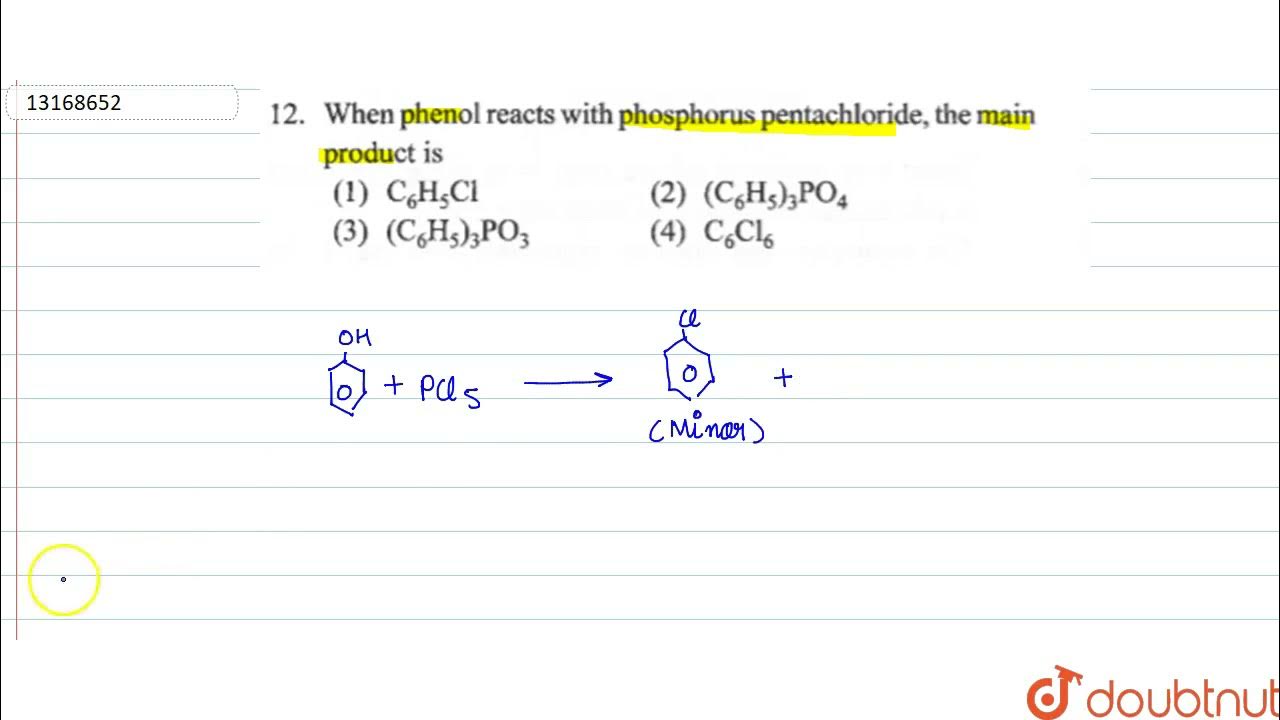 13168652
12. When phenol reacts with phosphorus pentachloride, the main
product is
(1) C₆H₅Cl (2) (C₆H₅)₃PO₄
(3) (C₆H₅)₃PO₃ (4) C₆Cl₆
OH Cl
+ PCl₅ +
(Minor)
doubtnut